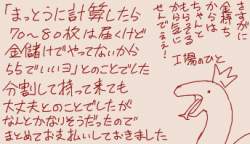 「まっとうに計算したら
70〜80枚は届くけど
金儲けでやってないから
55でいいヨ」とのことでした
分割して持って来ても
大丈夫とのことでしたが
なんとかなりそうだったので
まとめてお支払いしておきました
さすがに
金持ち
からは
ちゃんと
もらうに
せんでぇぇ!
工場のひと